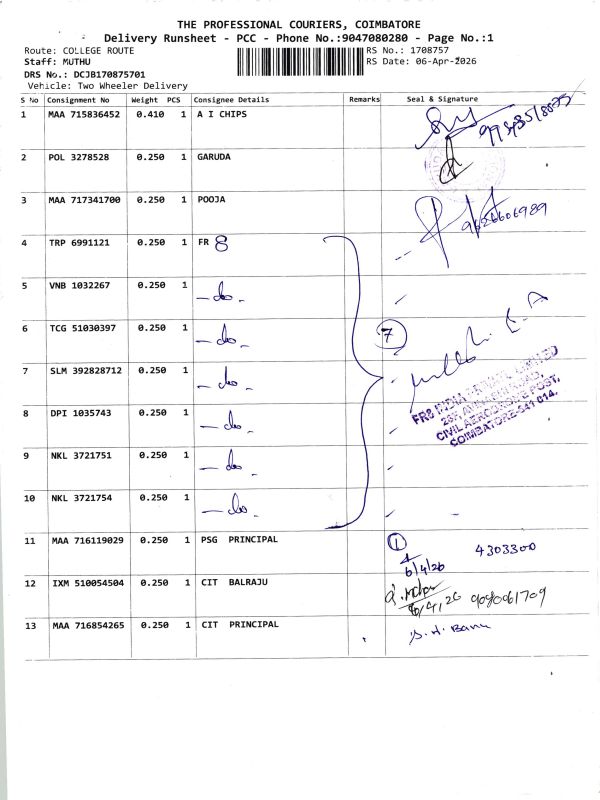 THE PROFESSIONAL COURIERS, COIMBATORE
Delivery Runsheet - PCC - Phone No.:9047080280 - Page No.:1
Route: COLLEGE ROUTE RS No.: 1708757
Staff: MUTHU RS Date: 06-Apr-2026
DRS No.: DCJB170875701
Vehicle: Two Wheeler Delivery
S No Consignment No Weight PCS Consignee Details Remarks Seal & Signature
1 MAA 715836452 0.410 1 A I CHIPS
2 POL 3278528 0.250 1 GARUDA
3 MAA 717341700 0.250 1 POOJA 9626606989
4 TRP 6991121 0.250 1 FR 8
5 VNB 1032267 0.250 1 - do -
6 TCG 51030397 0.250 1 - do - 7
7 SLM 392828712 0.250 1 - do -
FR8 INDIA LIMITED
8 DPI 1035743 0.250 1 - do -
CIVIL AERODROME POST,
COIMBATORE-641 014.
9 NKL 3721751 0.250 1 - do -
10 NKL 3721754 0.250 1 - do -
11 MAA 716119029 0.250 1 PSG PRINCIPAL 1 4303300
6/4/26
12 IXM 510054504 0.250 1 CIT BALRAJU
6/4/26 9080061709
13 MAA 716854265 0.250 1 CIT PRINCIPAL S. H. Banu